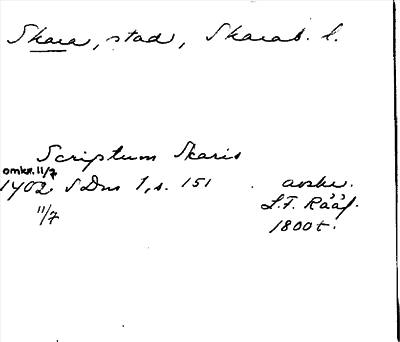 Skara, stad, Skarab. l.
Scriptum Skaris
omkr. 11/7
1402 SDns 1, s. 151 . avskr.
11/7 L.F. Rääf.
1800 t.